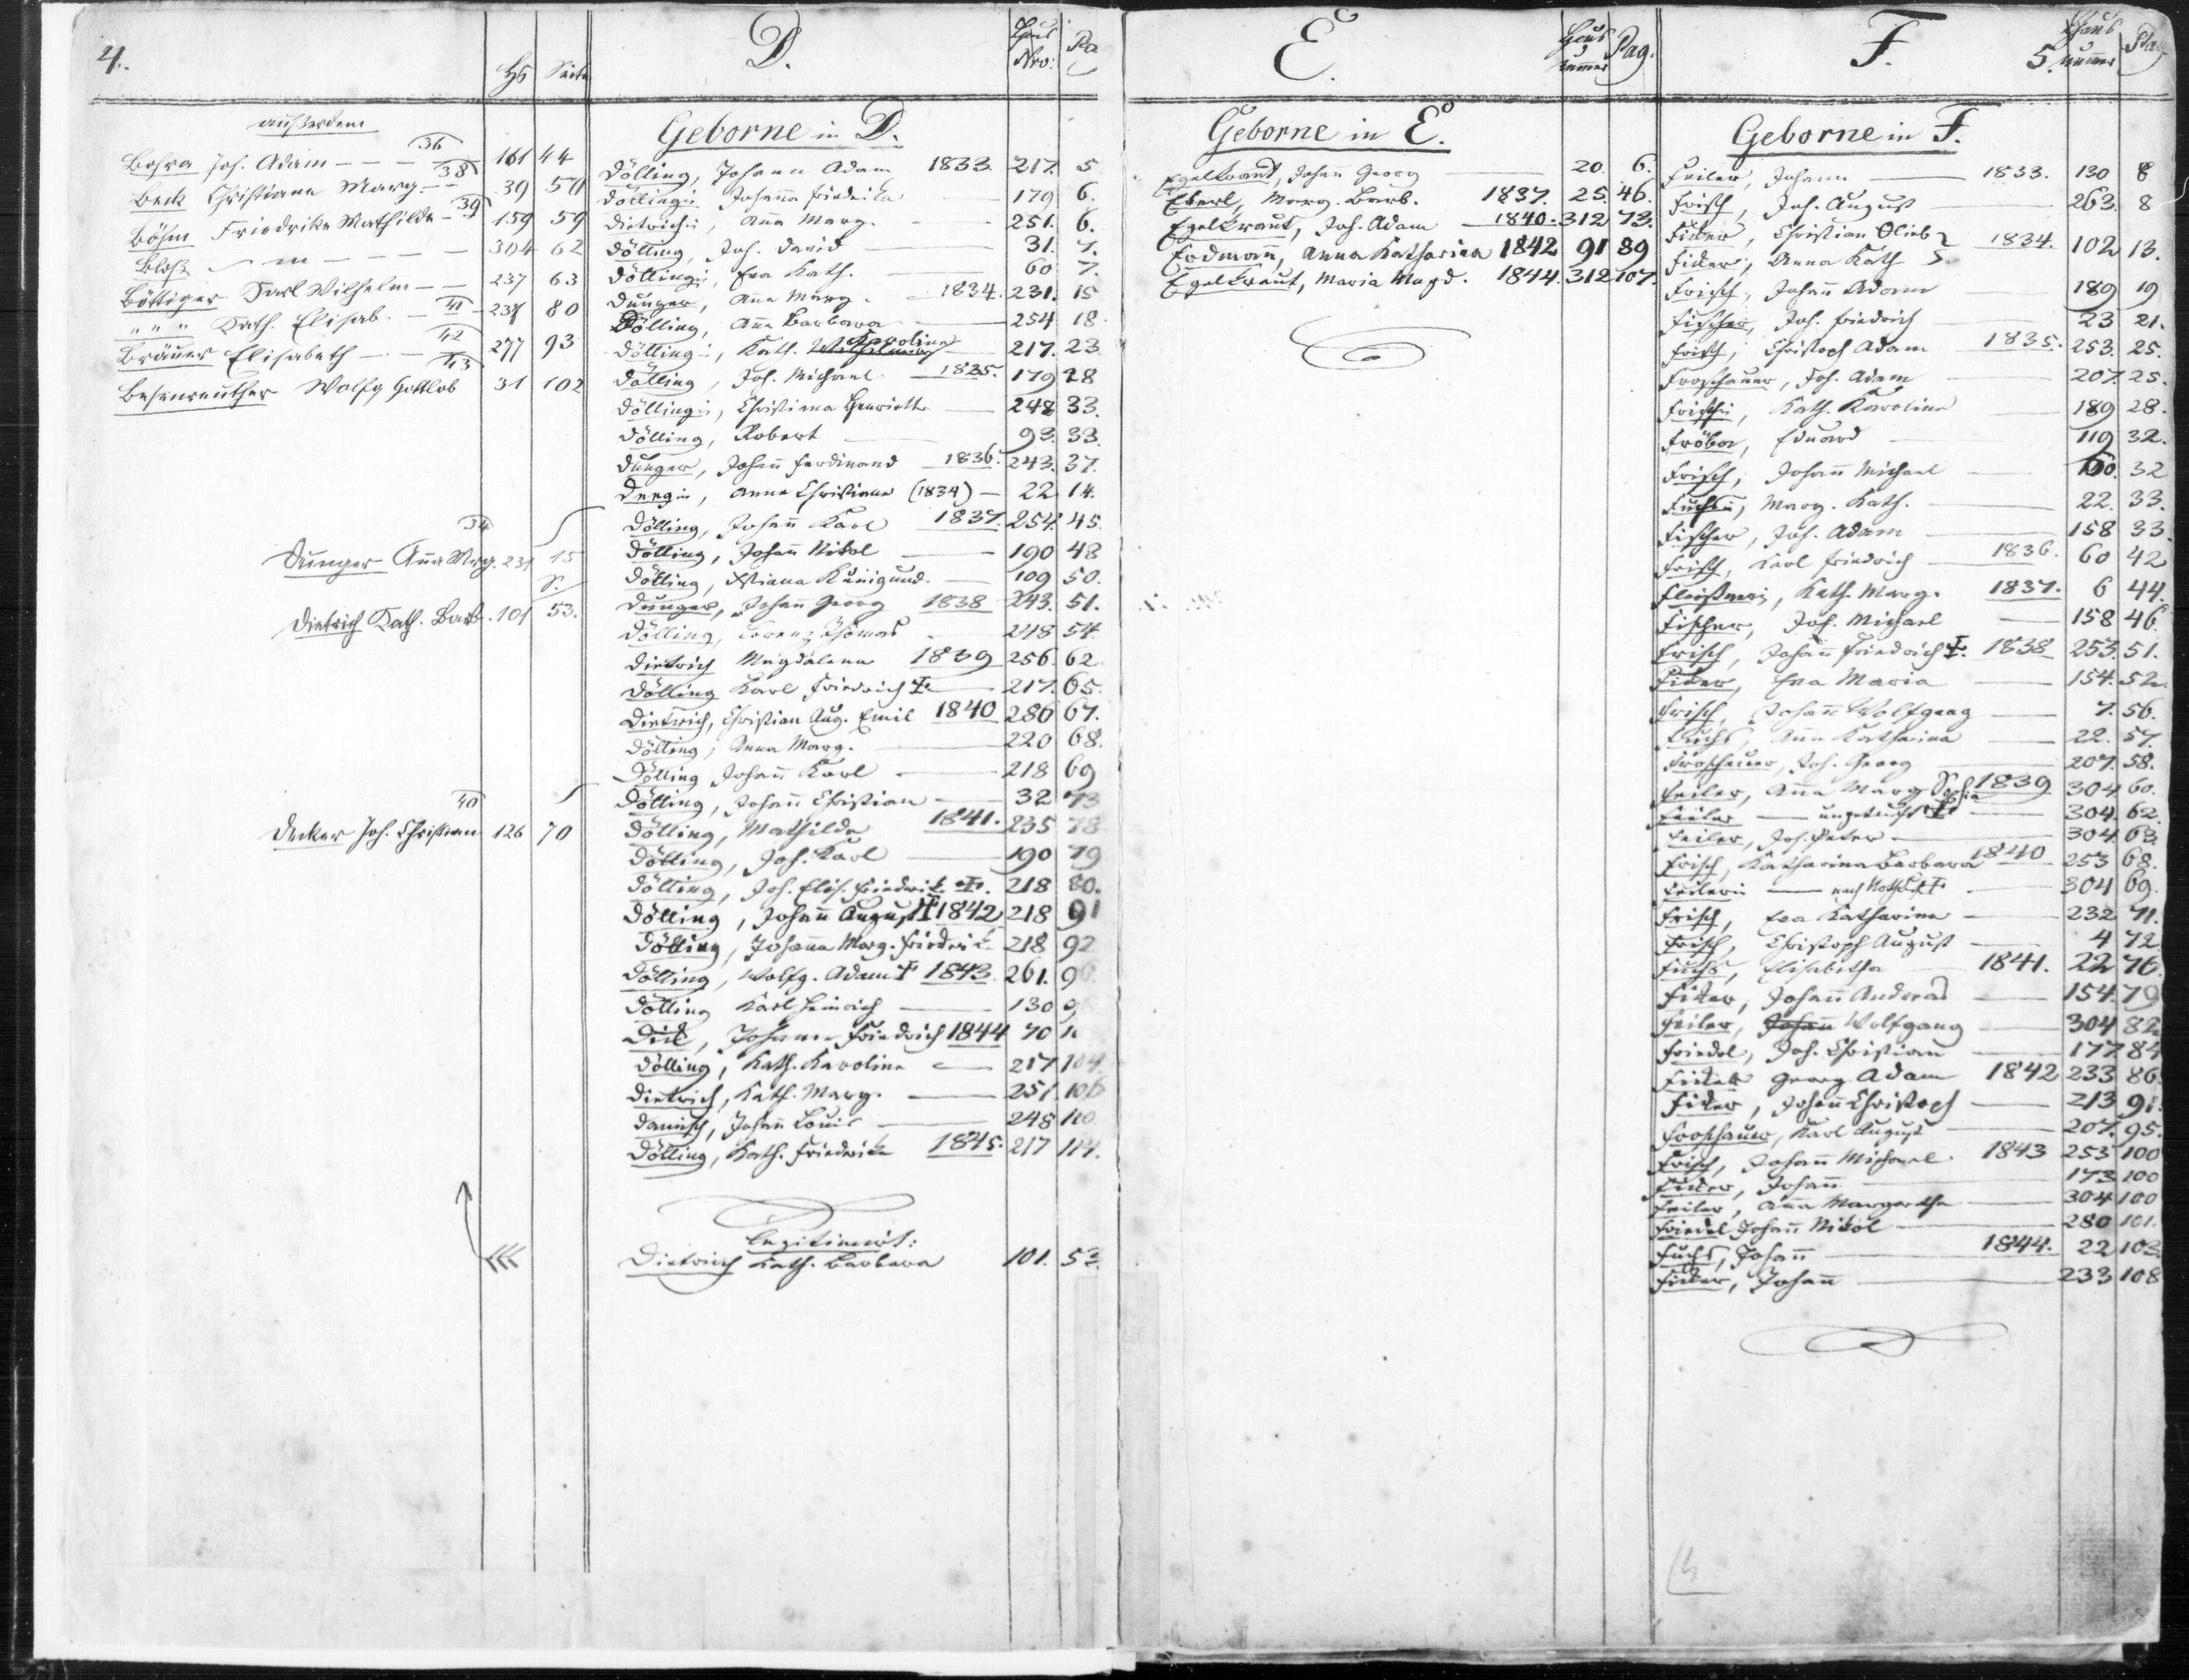 4.
Hs Seite
außerdem
36
Bohra Joh. Adam - - - 161 44
38
Beck Christiana Marg. - - 39 50
39
Böhm Friedrika Mathilde - 159 59
Bloß - - - - 304 62
Böttiger Karl Wilhelm - - 237 63
41
" " " Kath. Elisab. - 237 80
42
Bräuer Elisabeth - - 277 93
43
Wolfg Gottlob 31 102
34
Dunger Anna Marg. 231 15
S.
Dietrich Kath. Barb. 101 53.
40
Decker Joh. Christian 126 70
D.
Haus Nro: Pa
Geborne in D.
Dölling, Johann Adam 1833. 217. 5
Döllingin, Johanna Friedrika 179 6.
Dietrichin, Anna Marg. - 251. 6.
Dölling, Joh. David — 31. 7.
Döllingin, Eva Kath. — 60 7.
Dunger, Anna Marg. - 1834. 231. 15
Dölling, Anna Barbara — 254 18
Döllingin, Kath. Wilhelmine Karolina — 217. 23
Dölling, Joh. Michael 1835. 179 28
Döllingin, Christiana Henriette — 248 33.
Dölling, Robert — 93. 33.
Dunger, Johann Ferdinand 1836. 243. 37.
Anna Christiana (1834) — 22 14.
Dölling, Johann Karl 1837. 254. 45.
Dölling, Johann Nikol — 190 48
Dölling, Xstiana Kunigund. — 109 50.
Dunger, Johann Georg 1838 243. 51.
Dölling, Lorenz Thomas - 218 54.
Dietrich Magdalena 1839 256. 62
Dölling Karl Friedrich † — 217. 65.
Dietrich, Christian Aug. Emil 1840 286 67.
Dölling, Anna Marg. — 220 68.
Dölling Johann Karl — 218 69
Dölling, Johann Christian — 32 73
Dölling, Mathilda 1841. 235 78
Dölling, Joh. Karl — 190 79
Dölling, Joh. Elis. Friedrik. †. 218 80.
Dölling, Johann August † 1842 218 91
Dölling, Johanna Marg. Friedrik. 218 92
Dölling, Wolfg. Adam † 1843. 261. 96
Dölling Karl Heinrich — 130 9
Dick, Johann Friedrich 1844 70 1
Dölling, Kath. Karolina — 217 104.
Dietrich, Kath. Marg. — 251. 106
Johann Louis — 248 110
Dölling, Kath. Friedrika 1845. 217 114.
Legitimirt:
Dietrich Kath. Barbara 101. 53.
E.
Haus nummer Pag.
Geborne in E.
Egelkraut, Johann Georg — 20. 6.
Eberl, Marg. Barb. 1837. 25. 46.
Egelkraut, Joh. Adam — 1840. 312 73.
Erdmann, Anna Katharina 1842 91 89
Egelkraut, Maria Magd. 1844. 312 107.
F.
5. Haus nummer Pag
Geborne in F.
Feiler, Johann — 1833. 130 8
Frisch, Joh. August — 263. 8
Ficker, Christian Glieb
Ficker, Anna Kath 1834. 102 13.
Frisch, Johann Adam — 189 19
Fischer, Joh. Friedrich — 23 21.
Frisch, Christoph Adam 1835. 253. 25.
Froschauer, Joh. Adam — 207. 25.
Frischin, Kath. Karolina — 189 28.
Fröber, Eduard — 119 32.
Frisch, Johann Michael — 32
Fuchsin, Marg. Kath. — 22. 33.
Fischer, Joh. Adam — 158 33.
Frisch, Karl Friedrich 1836. 60 42
Kath. Marg. 1837. 6 44.
Fischer, Joh. Michael — 158 46.
Frisch, Johann Friedrich †. 1838 253. 51.
Ficker, Eva Maria — 154. 52.
Frisch, Johann Wolfgang — 7. 56.
Fuchs, Anna Katharina — 22. 57.
Froschauer, Joh. Georg — 207. 58.
Feiler, Anna Marg Sophia 1839 304 60.
Feiler — ungetauft † — 304. 62.
Feiler, Joh. Peter — 304. 63.
Frisch, Katharina Barbara 1840 253 68.
Feilerin — nach Nothtf. † — 304 69.
Frisch, Eva Katharina — 232 71.
Frisch, Christoph August — 4 72
Fuchs, Elisabetha 1841. 22 76.
Ficker, Johann Andreas — 154. 79
Feiler, Johann Wolfgang — 304 82.
Friedel, Joh. Christian — 177 84
Ficker Georg Adam 1842 233 86.
Ficker, Johann Christoph — 213 91.
Froschauer, Karl August — 207. 95.
Frisch, Johann Michael 1843 253 100
Ficker, Johann — 173 100
Feiler, Anna Margaretha — 304 100
Friedel Johann Nikol — 280 101.
Fuchs, Johann — 1844. 22 103.
Ficker, Johann — 233 108